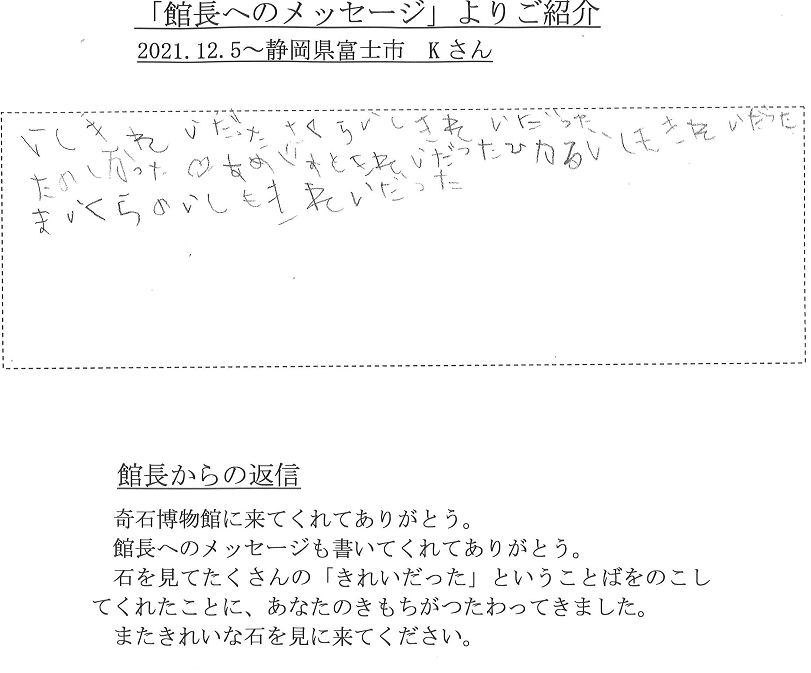 「館長へのメッセージ」よりご紹介
2021.12.5～静岡県富士市　Kさん
いしきれいだったさくらいしきれいだったいしもきれいだった
たのしかった♡あめじすときれいだったひかるいしもきれいだった
まいくらのいしもきれいだった
館長からの返信
奇石博物館に来てくれてありがとう。
館長へのメッセージも書いてくれてありがとう。
石を見てたくさんの「きれいだった」ということばをのこし
てくれたことに、あなたのきもちがつたわってきました。
またきれいな石を見に来てください。